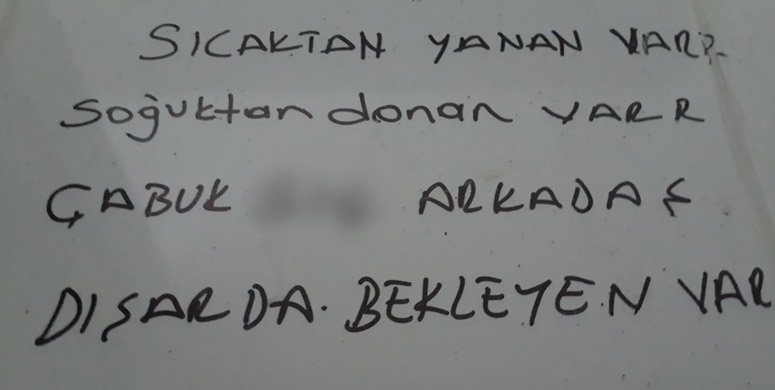 SICAKTAN YANAN VARR
Soğuktan donan VARR
ÇABUK ARKADAŞ
DIŞARDA. BEKLEYEN VAR